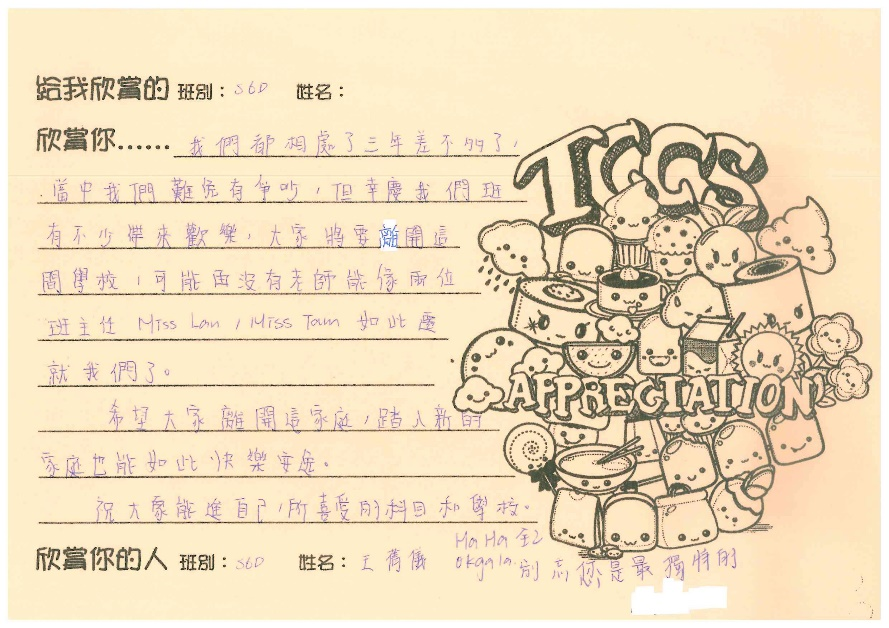 給我欣賞的 班別：S6D 姓名：
欣賞你…… 我們都相處了三年差不多了，
當中我們難免有爭吵，但幸慶我們班
有不少帶來歡樂，大家將要離開這
間學校，可能再沒有老師能像兩位
班主任 Miss Lan，Miss Tam 如此遷
就我們了。
希望大家離開這家庭，踏入新的
家庭也能如此快樂安逸。
祝大家能進自己所喜愛的科目和學校。
欣賞你的人 班別：S6D 姓名：王蒨儀
Ha Ha
okgala 別忘您是最獨特的
TCGS
APPRECIATION!